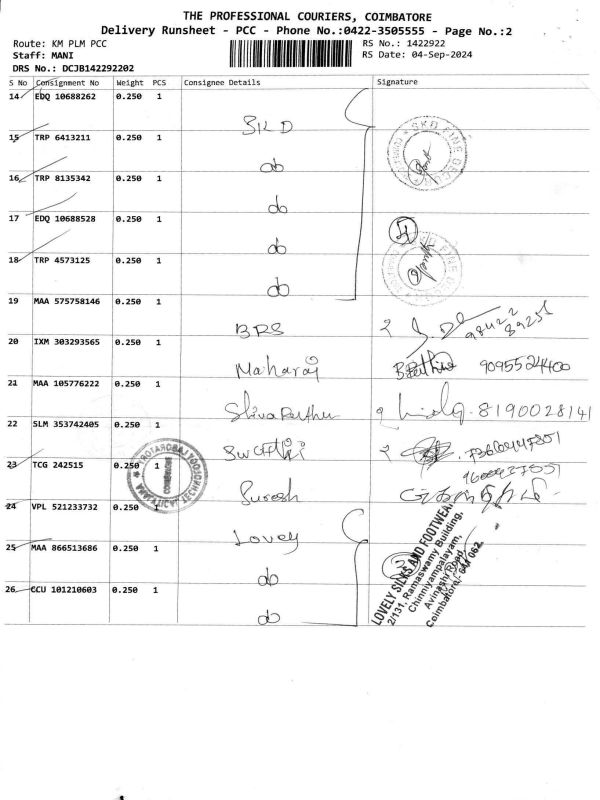 THE PROFESSIONAL COURIERS, COIMBATORE
Delivery Runsheet - PCC - Phone No.:0422-3505555 - Page No.:2
Route: KM PLM PCC
RS No.: 1422922
Staff: MANI
RS Date: 04-Sep-2024
DRS No.: DCJB142292202
S No Consignment No Weight PCS Consignee Details Signature
14 EDQ 10688262 0.250 1 SKD
15 TRP 6413211 0.250 1 do
16 TRP 8135342 0.250 1 do
17 EDQ 10688528 0.250 1 do
18 TRP 4573125 0.250 1 do
19 MAA 575758146 0.250 1 BRS
20 IXM 303293565 0.250 1 Maharaj 9095524400
21 MAA 105776222 0.250 1 8190028141
22 SLM 353742405 0.250 1
23 TCG 242515 0.250 1 Suresh
24 VPL 521233732 0.250 1 Lovely
25 MAA 866513686 0.250 1 do
26 CCU 101210603 0.250 1 do
5
3
LOVELY SILKS AND FOOTWEAR
2/131, Ramaswamy Building,
Chinniyampalayam,
Avinashi Road,
Coimbatore - 641 062.